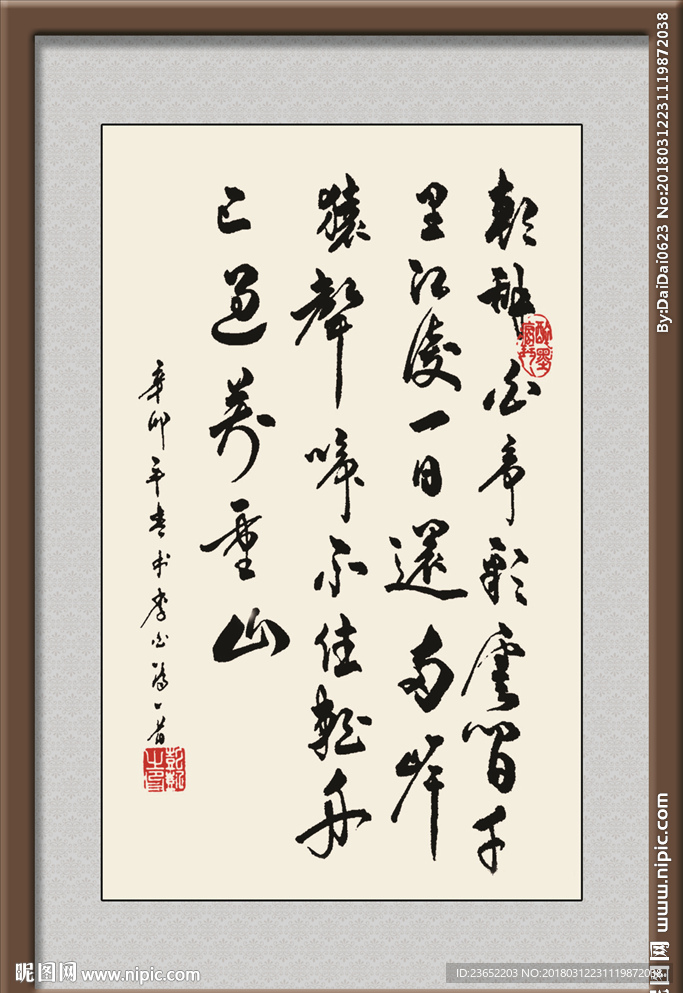 朝辭白帝彩雲間千
里江陵一日還兩岸
猿聲啼不住輕舟
已過萬重山
辛卯年春书李白诗一首
By:DaiDai0623 No:20180312231119872038
www.nipic.com
昵图网 www.nipic.com
ID:23652203 NO:20180312231119872038